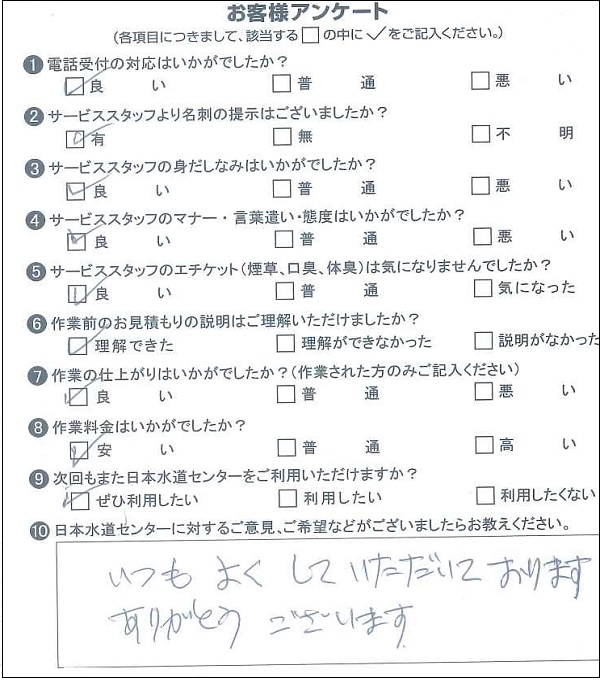 お客様アンケート
(各項目につきまして、該当する□の中に✓をご記入ください。)
❶電話受付の対応はいかがでしたか?
☑良い □普通 □悪い
❷サービススタッフより名刺の提示はございましたか?
☑有 □無 □不明
❸サービススタッフの身だしなみはいかがでしたか?
☑良い □普通 □悪い
❹サービススタッフのマナー・言葉遣い・態度はいかがでしたか?
☑良い □普通 □悪い
❺サービススタッフのエチケット(煙草、口臭、体臭)は気になりませんでしたか?
☑良い □普通 □気になった
❻作業前のお見積もりの説明はご理解いただけましたか?
☑理解できた □理解ができなかった □説明がなかった
❼作業の仕上がりはいかがでしたか?(作業された方のみご記入ください)
☑良い □普通 □悪い
❽作業料金はいかがでしたか?
☑安い □普通 □高い
❾次回もまた日本水道センターをご利用いただけますか?
☑ぜひ利用したい □利用したい □利用したくない
❿日本水道センターに対するご意見、ご希望などがございましたらお教えください。
いつも よく して いただいて おります
ありがとう ございます